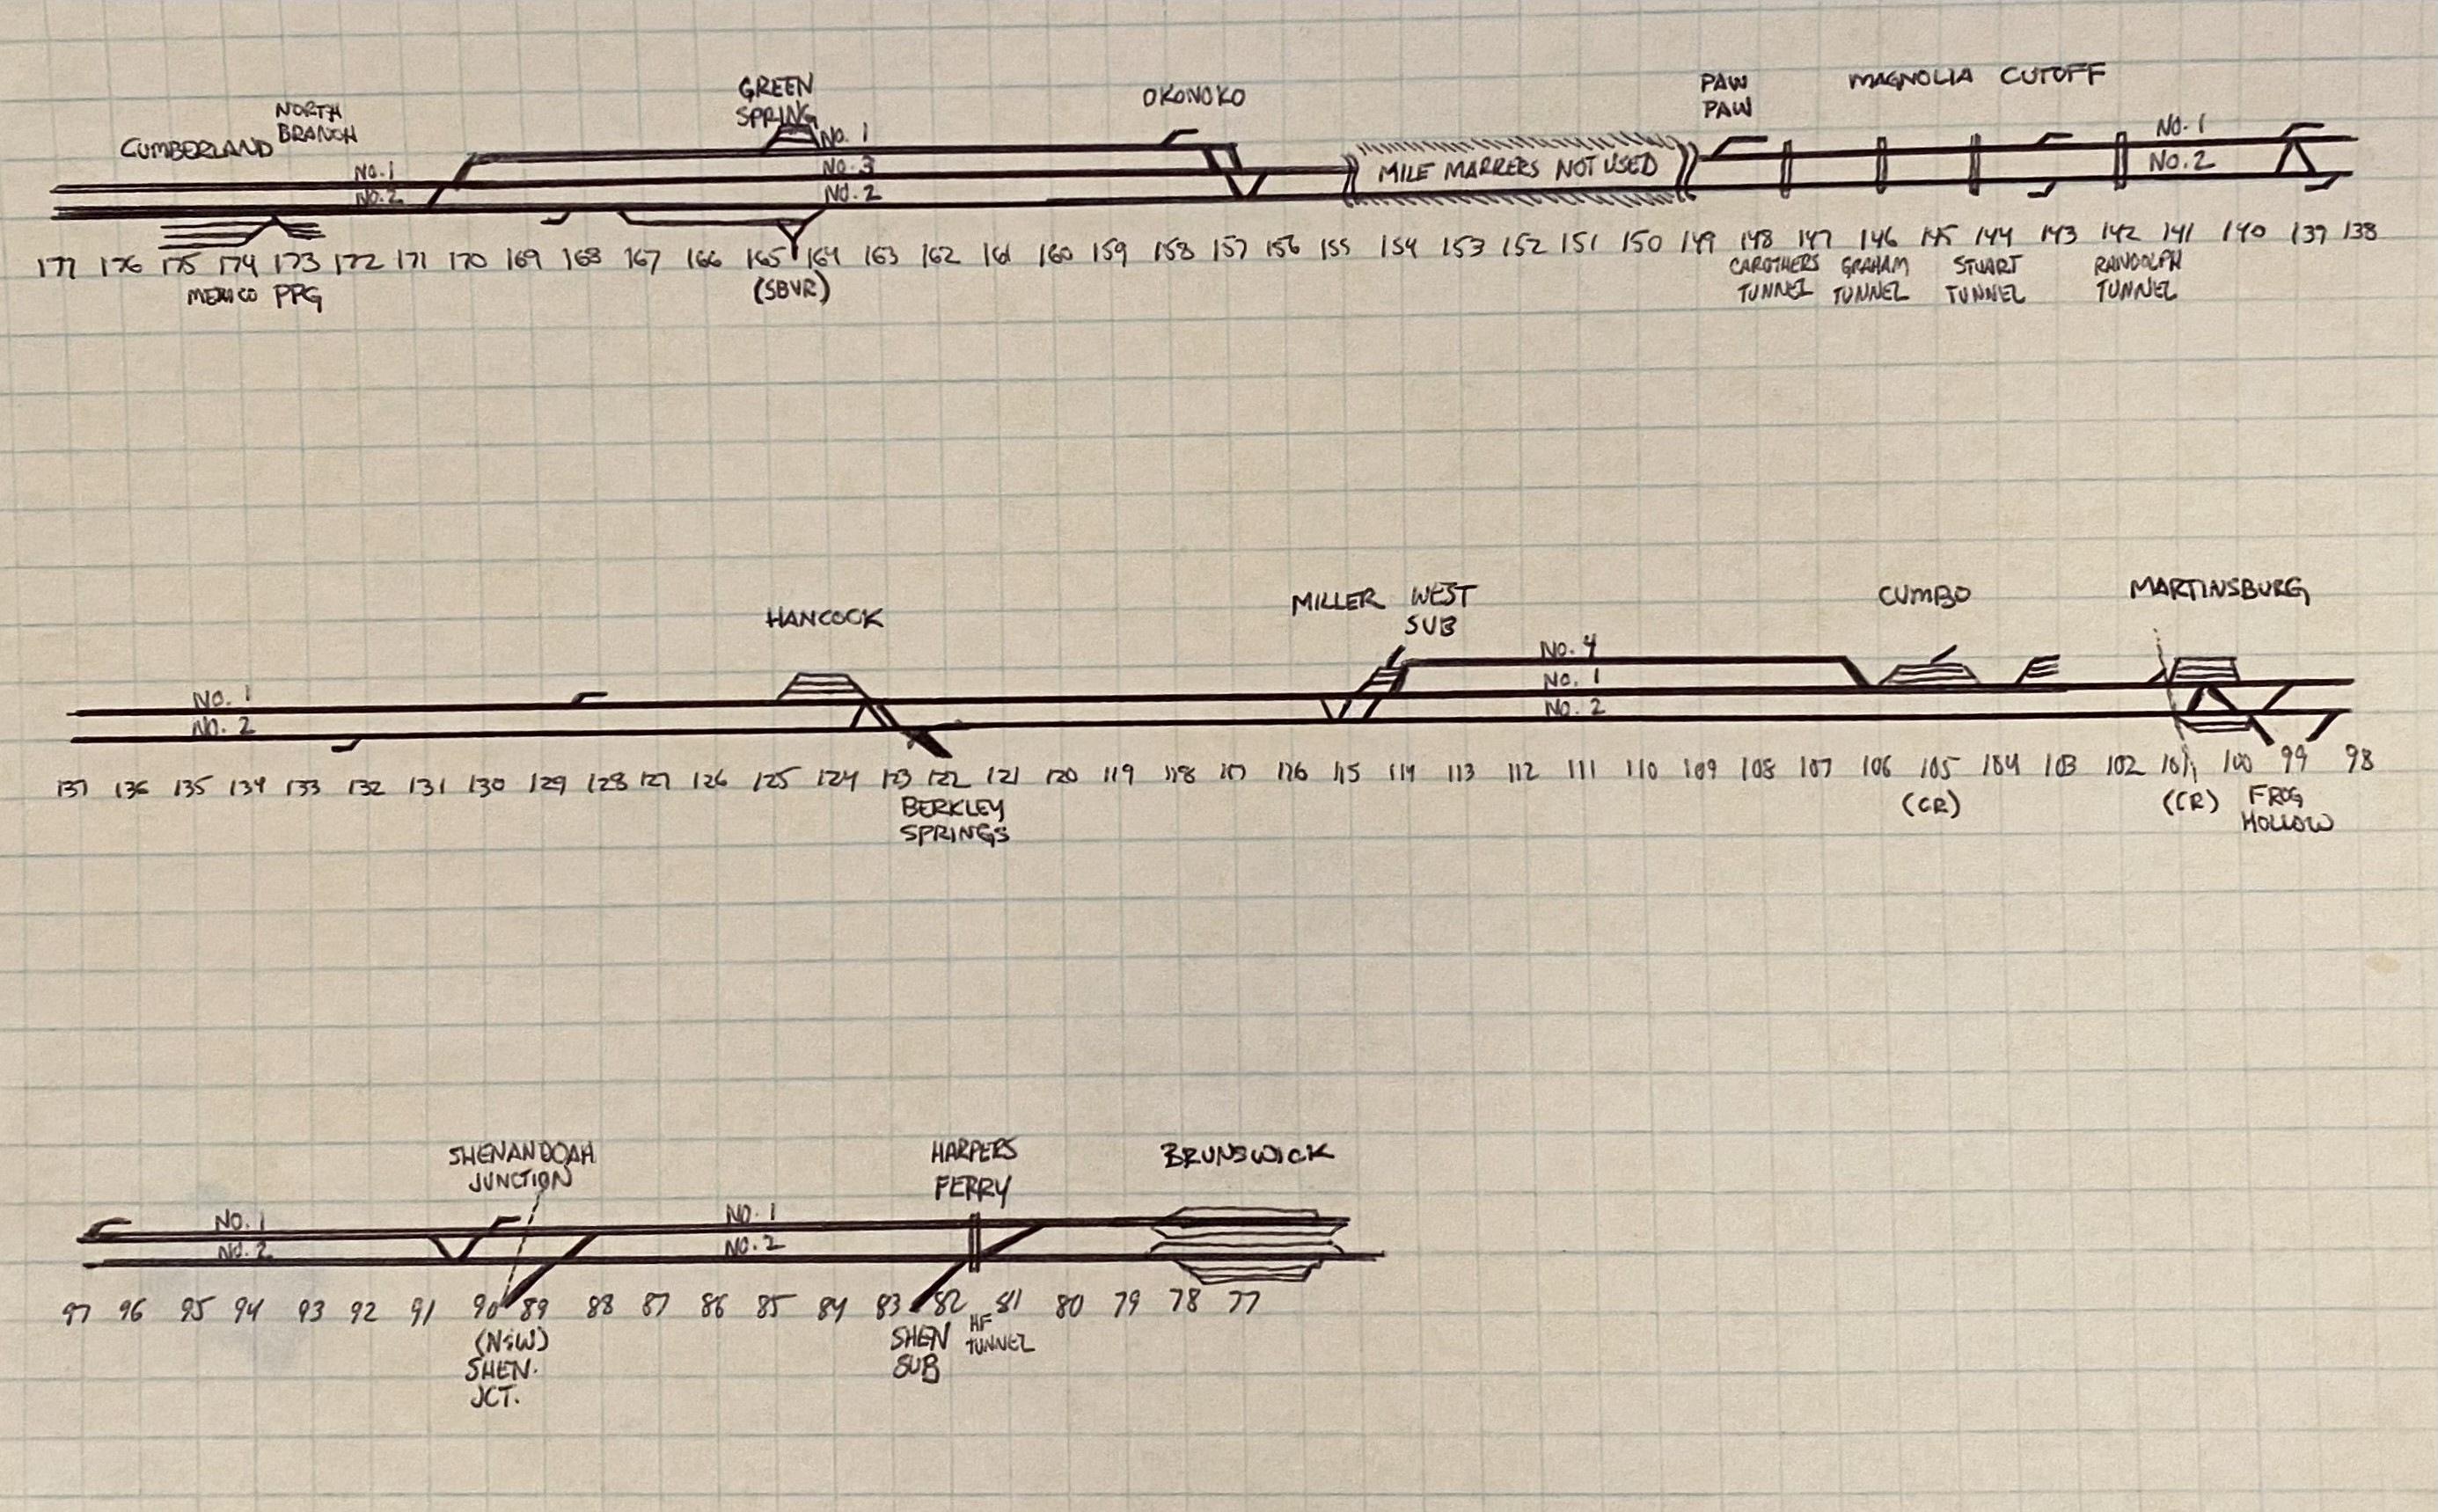 CUMBERLAND
NORTH
BRANCH
GREEN
SPRING
OKONOKO
PAW
PAW
MAGNOLIA CUTOFF
No. 1
No. 2
No. 1
No. 3
No. 2
MILE MARKERS NOT USED
No. 1
No. 2
177 176 175 174 173 172 171 170 169 168 167 166 165 164 163 162 161 160 159 158 157 156 155 154 153 152 151 150 149 148 147 146 145 144 143 142 141 140 139 138
MEXICO PPG
(SBVR)
CAROTHERS
TUNNEL
GRAHAM
TUNNEL
STUART
TUNNEL
RANDOLPH
TUNNEL
HANCOCK
MILLER
WEST
SUB
CUMBO
MARTINSBURG
No. 1
No. 2
No. 4
No. 1
No. 2
137 136 135 134 133 132 131 130 129 128 127 126 125 124 123 122 121 120 119 118 117 116 115 114 113 112 111 110 109 108 107 106 105 104 103 102 101 100 99 98
BERKLEY
SPRINGS
(CR)
(CR)
FROG
HOLLOW
SHENANDOAH
JUNCTION
HARPERS
FERRY
BRUNSWICK
No. 1
No. 2
No. 1
No. 2
97 96 95 94 93 92 91 90 89 88 87 86 85 84 83 82 81 80 79 78 77
(N&W)
SHEN.
JCT.
SHEN
SUB
HF
TUNNEL